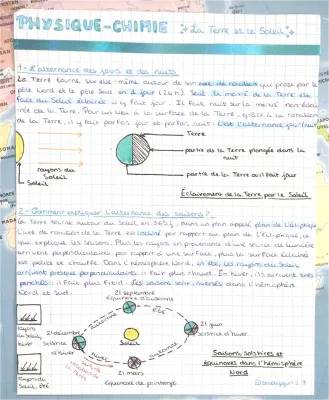 PHYSIQUE-CHIMIE La Terre et le Soleil
1 - L'alternance des jours et des nuits
La Terre tourne sur elle-même autour de son axe de rotation qui passe par le
pôle Nord et le pôle Sud en 1 jour (24h). Seule la moitié de la Terre est
face au Soleil éclairée il y fait jour. Il fait nuit sur la moitié non éclai-
rée de la Terre. Pour un lieu à la surface de la Terre, grâce à la rotation
de la Terre, il y fait parfois jour et parfois nuit : c'est l'alternance jour/nuit
Terre
partie de la Terre plongée dans la
nuit
partie de la Terre où il fait jour
rayons du
Soleil
Soleil
Éclairement de la Terre par le Soleil
2 - Comment expliquer l'alternance des saisons ?
La Terre tourne autour du Soleil en 365 j, dans un plan appelé plan de l'écliptique
L'axe de rotation de la Terre est incliné par rapport au plan de l'écliptique, ce
qui explique les saisons. Plus les rayons en provenance d'une source de lumière
arrivent perpendiculaires par rapport à une surface, plus la surface éclairée
est petite et chauffe. Dans l'hémisphère Nord, en été, les rayons du Soleil
arrivent presque perpendiculaires : il fait plus chaud. En hiver, ils arrivent très
penchés : il fait plus froid. Les saisons sont inversées dans l'hémisphère
Nord et Sud.
21 septembre
Équinoxe d'automne
AUTOMNE
ÉTÉ
Rayons
du Soleil
hiver
21 décembre
Solstice
d'hiver
Soleil
21 juin
Solstice d'hiver
HIVER
21 mars
Équinoxe de printemps
Rayons
du Soleil
été
Saisons, solstices et
équinoxes dans l'hémisphère
Nord